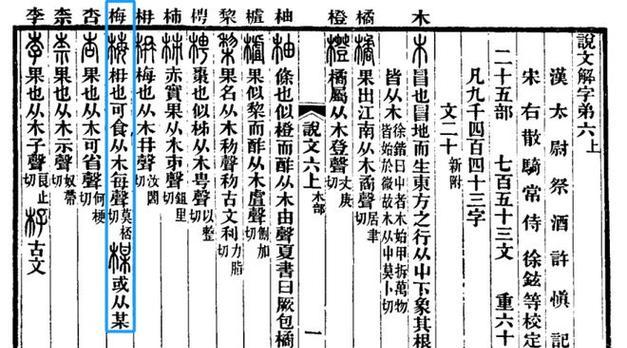 說文解字弟六上
漢太尉祭酒許慎記
宋右散騎常侍徐鉉等校定
二十五部 七百五十三文 重六十
凡九千四百四十三字
文二十新附
木 木 冒也冒地而生東方之行从屮下象其根
皆从木徐鍇曰屮者木始甲拆萬物皆始於微故木从屮莫卜切
橘 橘 果出江南从木矞聲居聿切
橙 橙 橘屬从木登聲丈庚切
說文六上 木部 一
柚 柚 條也似橙而酢从木由聲夏書曰厥包橘
樝 樝 果似棃而酢从木虘聲側加切
棃 果名从木𥝢聲𥝢古文利力脂切
梬 梬 棗也似柹从木甹聲以整切
柹 赤實果从木𠂔聲鉏里切
枏 枏 梅也从木冄聲汝閻切
梅 梅 枏也可食从木每聲莫桮切 楳 或从某
杏 杏 果也从木可省聲何梗切
柰 果也从木示聲奴帶切
李 李 果也从木子聲良止切 杍 古文